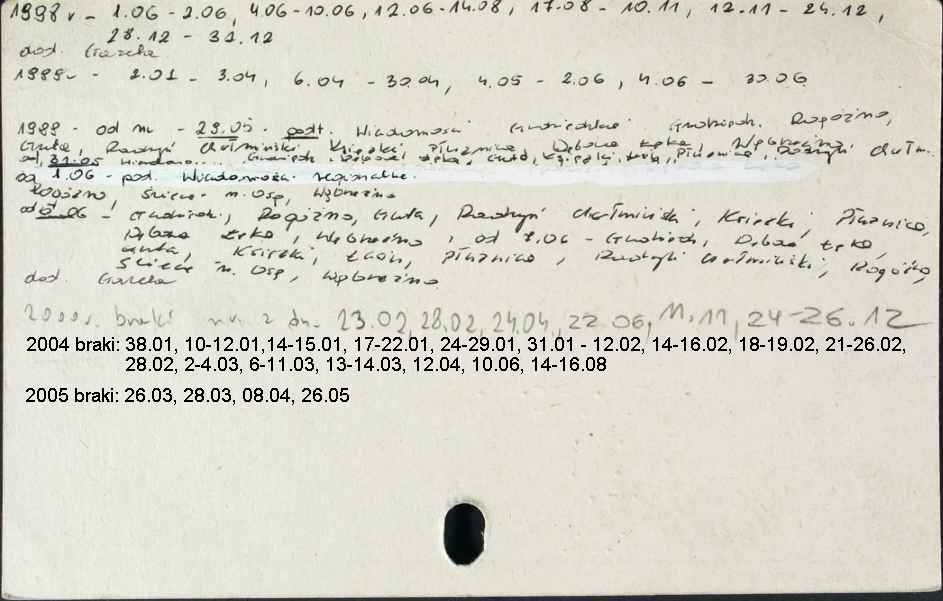 1998 r - 1.06 - 2.06, 4.06-10.06, 12.06-14.08, 17.08 - 10.11, 12.11 - 24.12,
28.12 - 31.12
dod. Gazeta
1999 r - 2.01 - 3.04, 6.04 - 30.04, 4.05 - 2.06, 4.06 - 30.06
1999 - od nr - 29.05 - podt. Wiadomości Rogóźno,
Gruta, Radzyń Chełmiński, Książki, Płużnica, Dębowa Łąka, Wąbrzeźno
od 31.05
od 1.06 - pod. Wiadomości regionalne.
Rogóźno, Świecie n. Osą, Wąbrzeźno
Rogóźno, Gruta, Radzyń Chełmiński, Książki, Płużnica,
Dębowa Łąka, Wąbrzeźno, od 7.06 - Grudziądz, Dębowa Łąka,
Gruta, Książki, Łasin, Płużnica, Radzyń Chełmiński, Rogóźno,
Świecie n. Osą, Wąbrzeźno
dod. Gazeta
2000 r. braki nr. z dn. 23.02, 28.02, 24.04, 22.06, 11.11, 24-26.12
2004 braki: 38.01, 10-12.01,14-15.01, 17-22.01, 24-29.01, 31.01 - 12.02, 14-16.02, 18-19.02, 21-26.02,
28.02, 2-4.03, 6-11.03, 13-14.03, 12.04, 10.06, 14-16.08
2005 braki: 26.03, 28.03, 08.04, 26.05